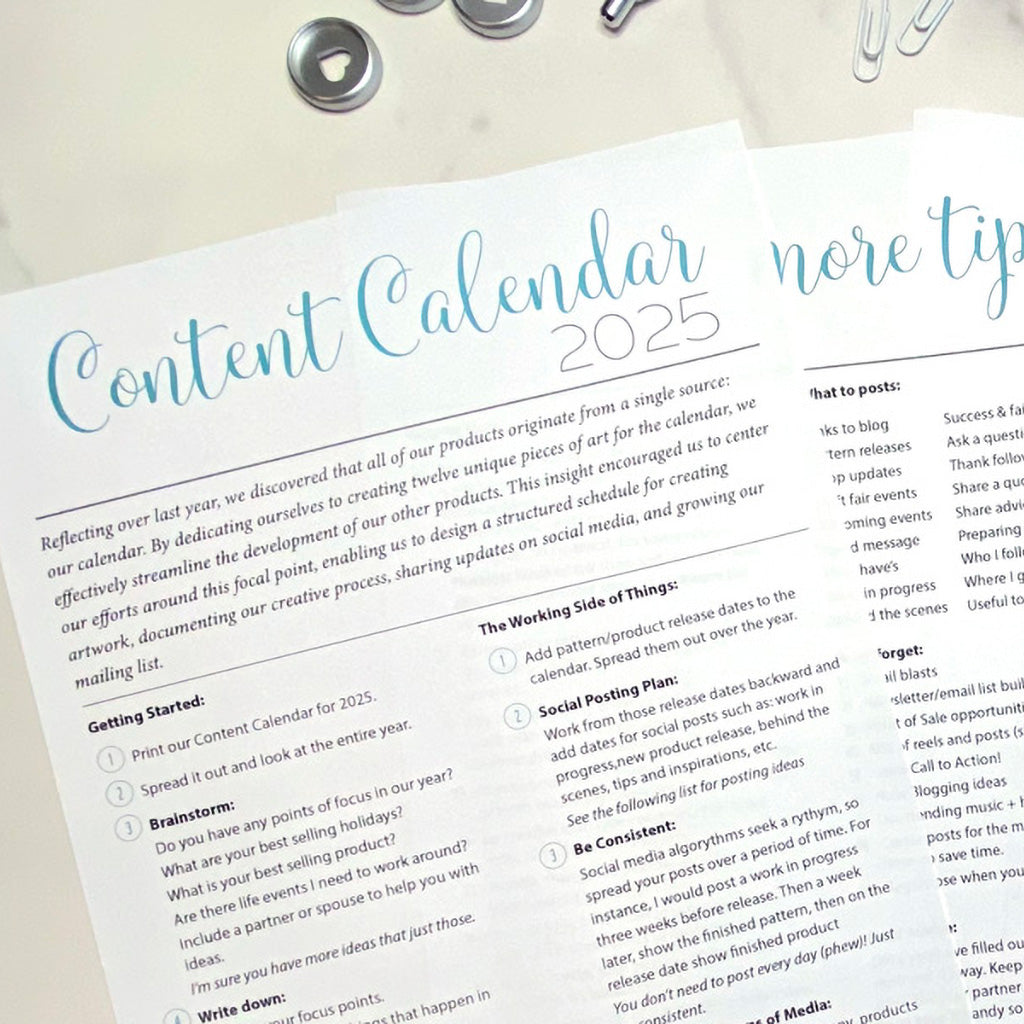 Content Calendar
2025
Reflecting over last year, we discovered that all of our products originate from a single source:
our calendar. By dedicating ourselves to creating twelve unique pieces of art for the calendar, we
effectively streamline the development of our other products. This insight encouraged us to center
our efforts around this focal point, enabling us to design a structured schedule for creating
artwork, documenting our creative process, sharing updates on social media, and growing our
mailing list.
Getting Started:
1 Print our Content Calendar for 2025.
2 Spread it out and look at the entire year.
3 Brainstorm:
Do you have any points of focus in our year?
What are your best selling holidays?
What is your best selling product?
Are there life events I need to work around?
Include a partner or spouse to help you with
ideas.
I'm sure you have more ideas that just those.
4 Write down:
our focus points.
that happen in
The Working Side of Things:
1 Add pattern/product release dates to the
calendar. Spread them out over the year.
2 Social Posting Plan:
Work from those release dates backward and
add dates for social posts such as: work in
progress,new product release, behind the
scenes, tips and inspirations, etc.
See the following list for posting ideas
3 Be Consistent:
Social media algorythms seek a rythym, so
spread your posts over a period of time. For
instance, I would post a work in progress
three weeks before release. Then a week
later, show the finished pattern, then on the
release date show finished product
You don't need to post every day (phew)! Just
consistent.
of Media:
products
more tip
hat to posts:
ks to blog
tern releases
p updates
t fair events
oming events
d message
have's
in progress
d the scenes
Success & fai
Ask a questi
Thank follow
Share a quo
Share advi
Preparing
Who I follo
Where I g
Useful to
orget:
il blasts
sletter/email list buil
t of Sale opportuniti
f reels and posts (s
Call to Action!
logging ideas
nding music + h
posts for the m
save time.
ose when you
ve filled ou
way. Keep
partner
andy so